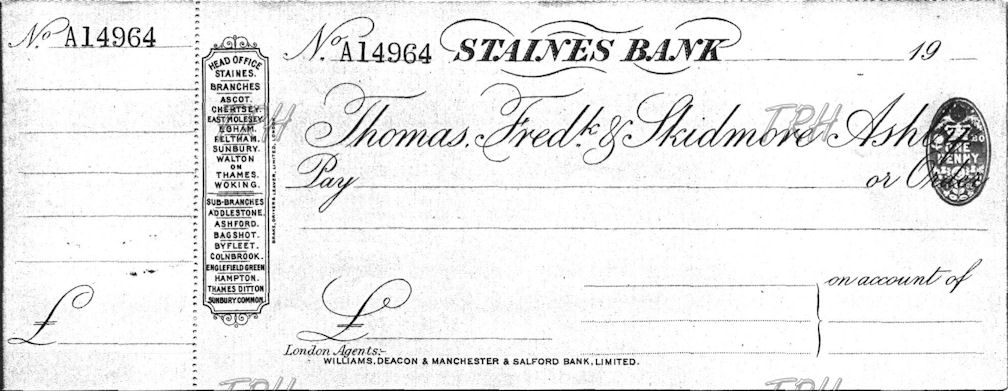 No. A14964
HEAD OFFICE
STAINES.
BRANCHES
ASCOT.
CHERTSEY.
EAST MOLESEY.
EGHAM.
FELTHAM.
SUNBURY.
WALTON
ON
THAMES.
WOKING.
SUB-BRANCHES
ADDLESTONE.
ASHFORD.
BAGSHOT.
BYFLEET.
COLNBROOK.
ENGLEFIELD GREEN
HAMPTON.
THAMES DITTON
SUNBURY COMMON.
£
No. A14964 STAINES BANK 19
Thomas, Fredk. & Skidmore
Pay or Order
ONE
PENNY
on account of
£
London Agents:-
WILLIAMS, DEACON & MANCHESTER & SALFORD BANK, LIMITED.
TPH
TPH
TPH
TPH